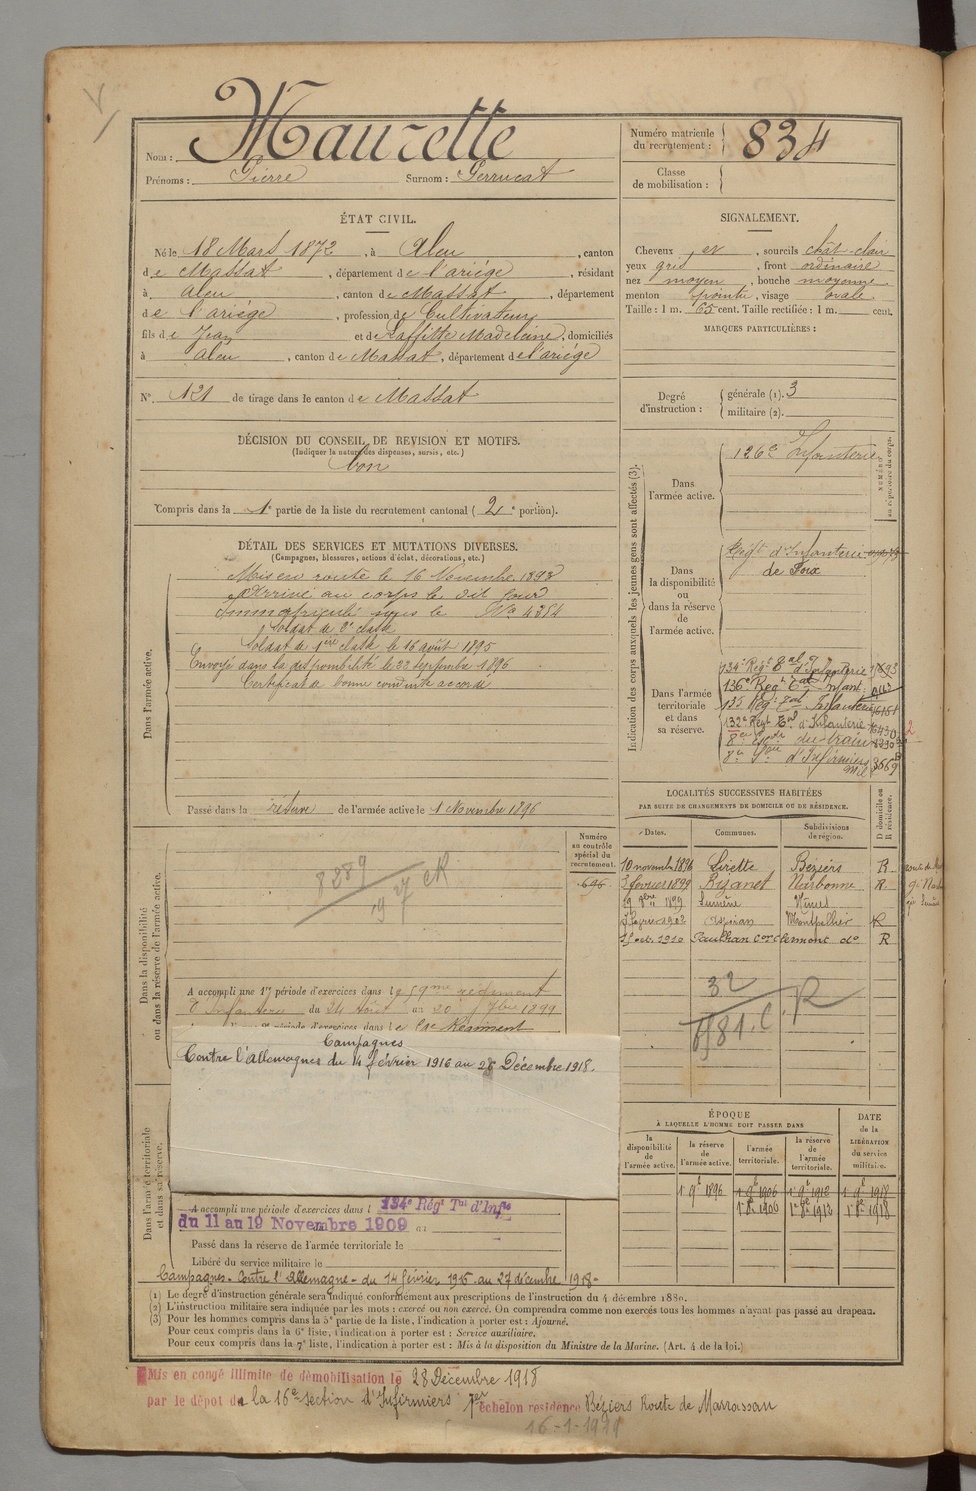 Nom : Maurette
Prénoms : Pierre Surnom : Perrucat
Numéro matricule du recrutement : 834
Classe de mobilisation :
ÉTAT CIVIL.
Né le 18 Mars 1872, à Aleu, canton
de Massat, département de l'ariége, résidant
à Aleu, canton de Massat, département
de l'ariége, profession de Cultivateur
fils de Jean et de Laffitte Madeleine, domiciliés
à Aleu, canton de Massat, département de l'ariége
N° 121 de tirage dans le canton de Massat
SIGNALEMENT.
Cheveux et, sourcils chât-clair
yeux gris, front ordinaire
nez moyen, bouche moyenne
menton pointu, visage ovale
Taille : 1 m. 65 cent. Taille rectifiée : 1 m. cent.
MARQUES PARTICULIÈRES :
Degré d'instruction :
générale (1). 3
militaire (2).
DÉCISION DU CONSEIL DE REVISION ET MOTIFS.
(Indiquer la nature des dispenses, sursis, etc.)
bon
Compris dans la 1e partie de la liste du recrutement cantonal (2e portion).
DÉTAIL DES SERVICES ET MUTATIONS DIVERSES.
(Campagnes, blessures, actions d'éclat, décorations, etc.)
Dans l'armée active.
Mis en route le 16 Novembre 1893
Arrivé au corps le dit jour
Immatriculé sous le No 4354
Soldat de 2e classe
Soldat de 1ère classe le 16 août 1895
Envoyé dans la disponibilité le 22 septembre 1896
Certificat de bonne conduite accordé
Passé dans la réserve de l'armée active le 1 Novembre 1896
Indication des corps auxquels les jeunes gens sont affectés (3).
NUMÉRO au répertoire du corps.
Dans l'armée active.
126e Infanterie
Dans la disponibilité ou dans la réserve de l'armée active.
Régt d'Infanterie
de Foix
Dans l'armée territoriale et dans sa réserve.
134e Régt Tal d'Infanterie
136e Régt Tal Infant
135 Régt Tal Infanterie
132e Régt Tal d'Infanterie
8e Escdn du train
8e Son d'Infirmiers Mil 3669
2
LOCALITÉS SUCCESSIVES HABITÉES
PAR SUITE DE CHANGEMENTS DE DOMICILE OU DE RÉSIDENCE.
Dates. Communes. Subdivisions de région. D domicile ou R résidence.
10 novembre 1896 Lirette Béziers R
3 février 1899 Bizanet Narbonne R
29 9bre 1899 Sumène Nîmes
Février 1902 Aspiran Montpellier R
15 oct. 1910 Paulhan Con Clermont do R
32
6181. C. R
Dans la disponibilité ou dans la réserve de l'armée active.
Numéro au contrôle spécial du recrutement.
696
8289 CR
A accompli une 1re période d'exercices dans le 59me régiment
d'Infanterie du 24 Août au 20 7bre 1899
période d'exercices dans le Régiment
Campagnes
Contre l'Allemagnes du 14 février 1916 au 28 Décembre 1918.
Dans l'armée territoriale et dans sa réserve.
A accompli une période d'exercices dans l 134e Régt Tal d'Infie
du 11 au 19 Novembre 1909 au
Passé dans la réserve de l'armée territoriale le
Libéré du service militaire le
Campagnes - Contre l'Allemagne - du 14 février 1916 au 27 décembre 1918 -
ÉPOQUE
À LAQUELLE L'HOMME DOIT PASSER DANS
la disponibilité de l'armée active. la réserve de l'armée active. l'armée territoriale. la réserve de l'armée territoriale.
DATE de la LIBÉRATION du service militaire.
1 9e 1896 1 9e 1906 1e 9e 1912 1 9e 1918
1e 8e 1906 1e 8e 1912 1e 8e 1918
(1) Le degré d'instruction générale sera indiqué conformément aux prescriptions de l'instruction du 4 décembre 1889.
(2) L'instruction militaire sera indiquée par les mots : exercé ou non exercé. On comprendra comme non exercés tous les hommes n'ayant pas passé au drapeau.
(3) Pour les hommes compris dans la 5e partie de la liste, l'indication à porter est : Ajourné.
Pour ceux compris dans la 6e liste, l'indication à porter est : Service auxiliaire.
Pour ceux compris dans la 7e liste, l'indication à porter est : Mis à la disposition du Ministre de la Marine. (Art. 4 de la loi.)
Mis en congé illimité de démobilisation le 28 Décembre 1918
par le dépôt de la 16e section d'Infirmiers 7er échelon residence Béziers Route de Maraussan
16-1-1919